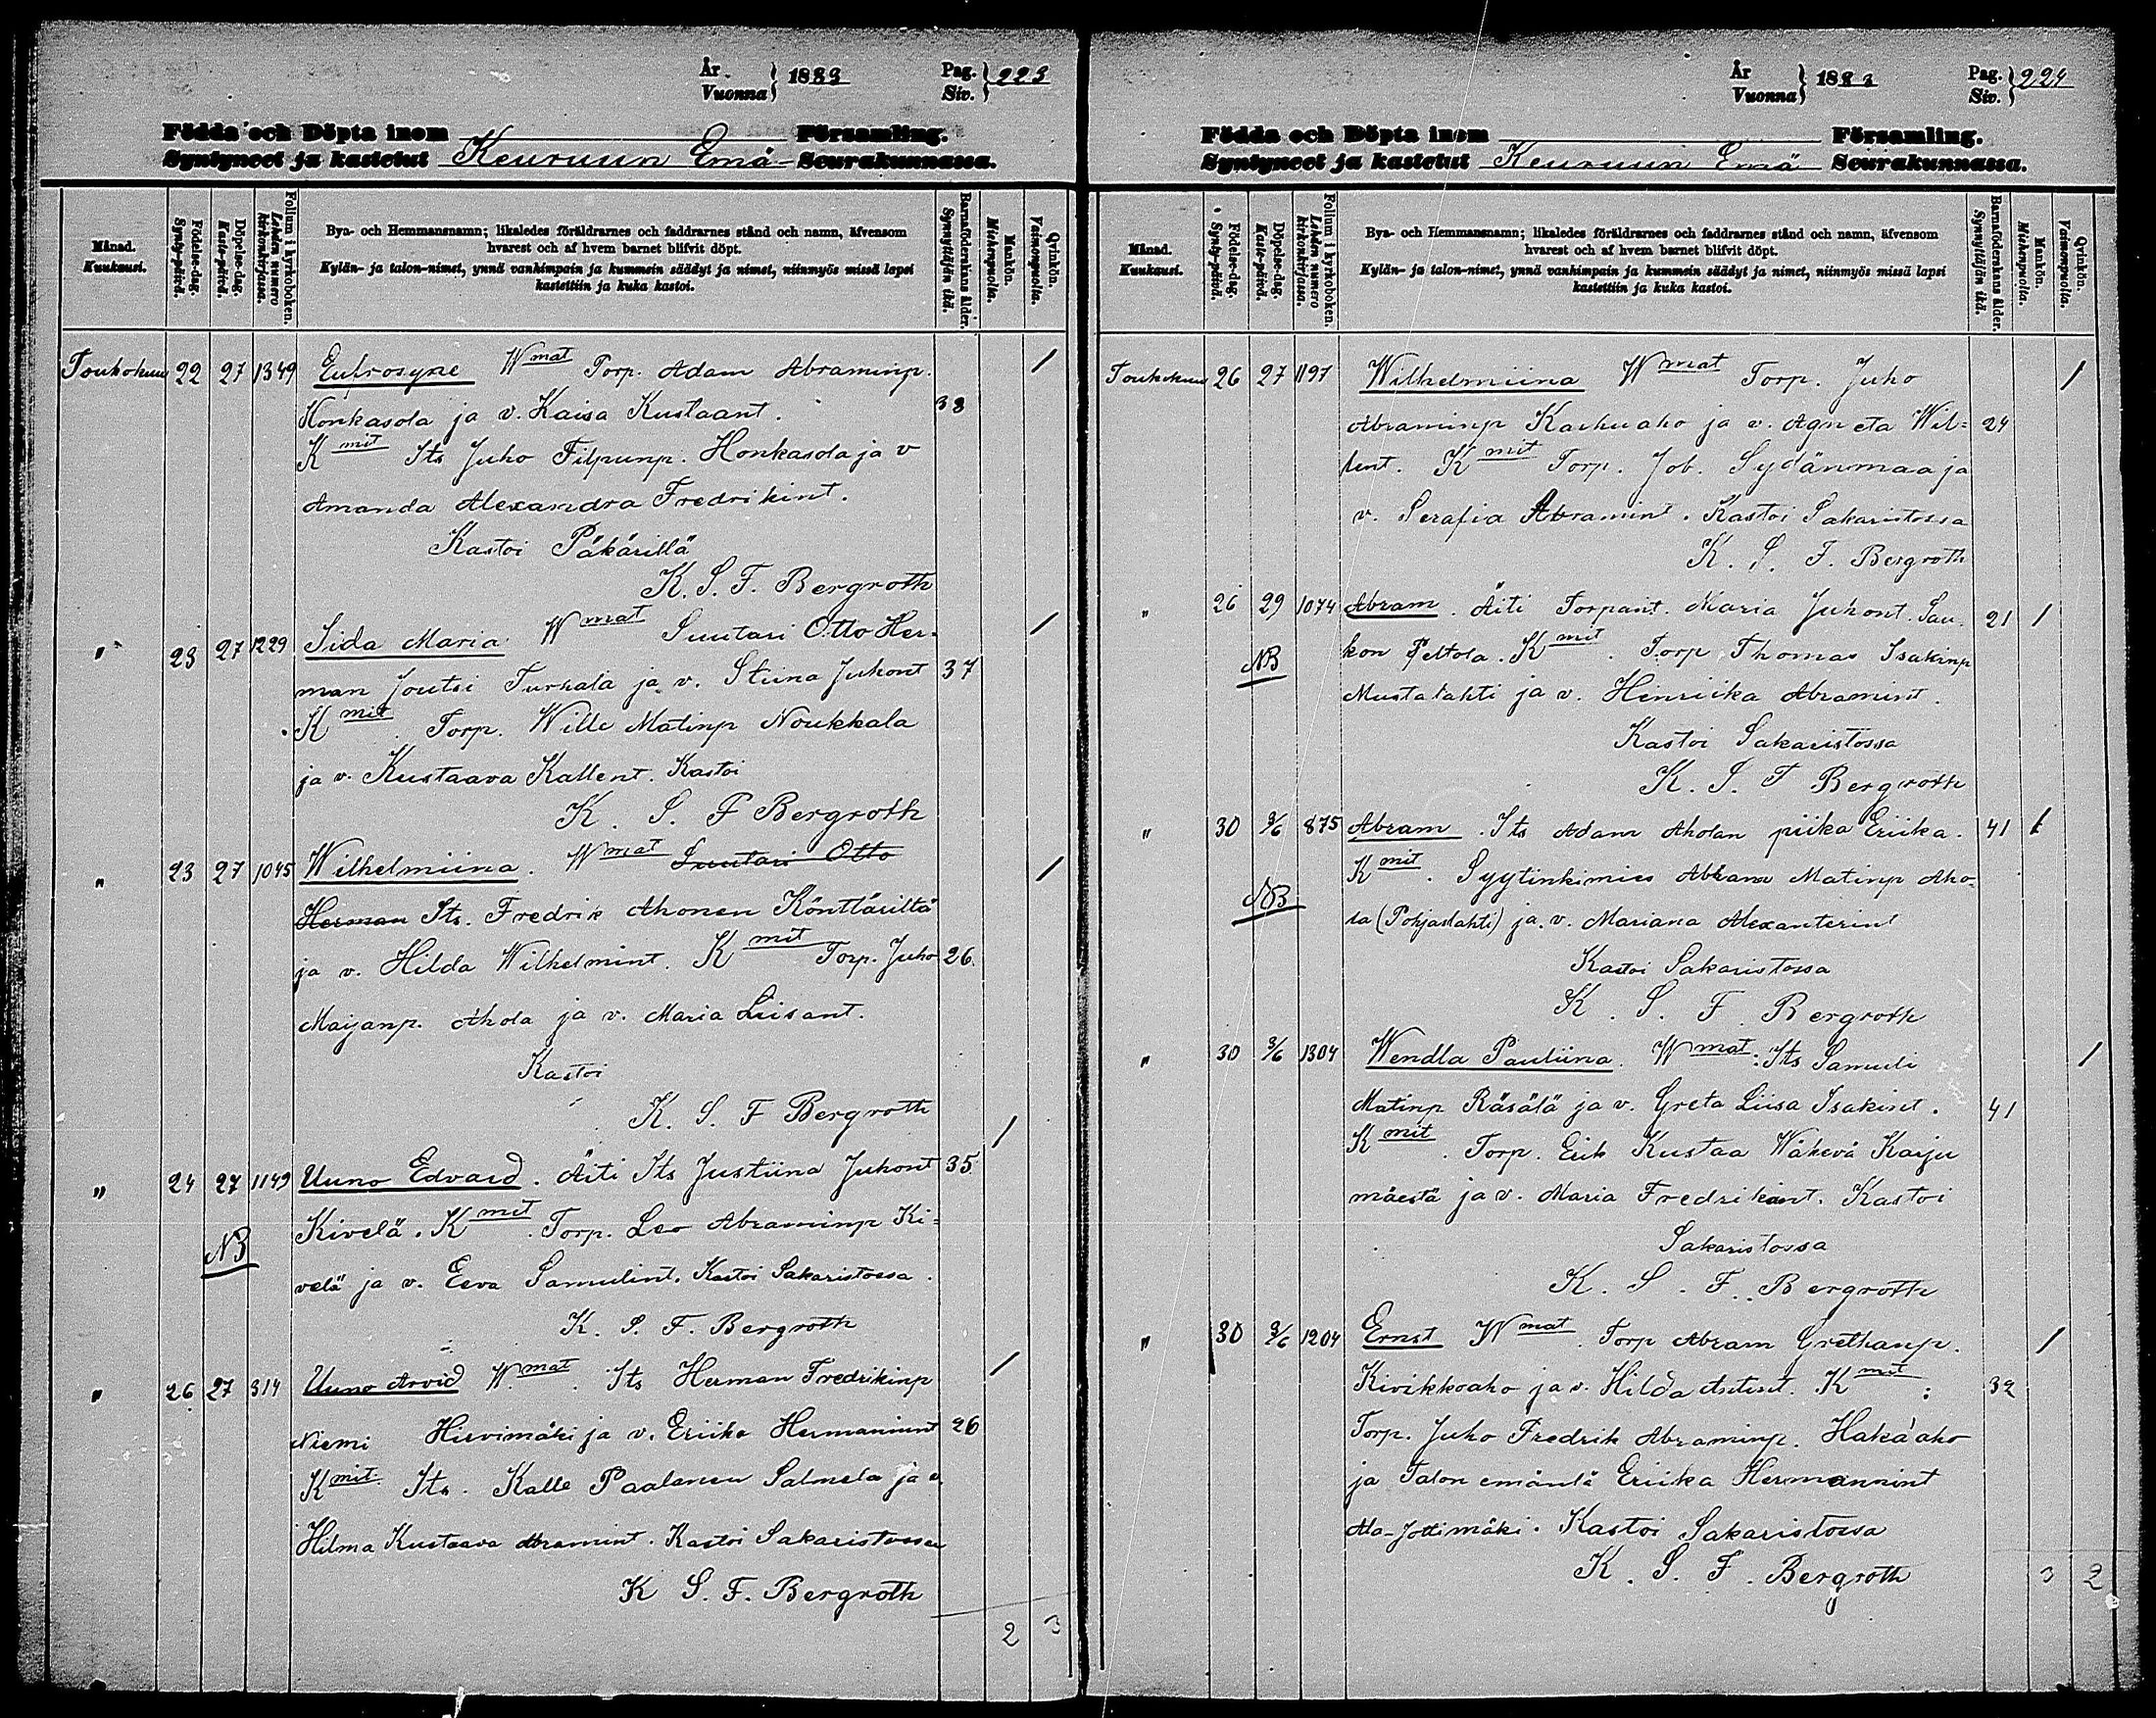 År Vuonna } 1883 Pag. Siv. } 223
Födda och Döpta inom Församling.
Syntyneet ja kastetut Keuruun Emä- Seurakunnassa.
Månad. Kuukausi.
Födelse-dag. Synty-päivä.
Döpelse-dag. Kaste-päivä.
Folium i kyrkoboken. Lehden numero kirkonkirjassa.
Bya- och Hemmansnamn; likaledes föräldrarnes och faddrarnes stånd och namn, äfvensom
hvarest och af hvem barnet blifvit döpt.
Kylän- ja talon-nimet, ynnä vanhimpain ja kummein säädyt ja nimet, niinmyös missä lapsi
kastettiin ja kuka kastoi.
Barnaföderskans ålder. Synnyttäjän ikä.
Mankön. Miehenpuolta.
Qvinkön. Vaimonpuolta.
Toukokuu 22 27 1349 Eufrosyne Wmat Torp. Adam Abraminp. /
Honkasola ja v. Kaisa Kustaant. 38
Kmit Its Juho Filpunp. Honkasola ja v
Amanda Alexandra Fredrikint.
Kastoi Päkärillä
K. S. F. Bergroth
" 23 27 1229 Iida Maria Wmat Suutari Otto Her- /
man Joutsi Turhala ja v. Stiina Juhont 37
Kmit. Torp. Wille Matinp Noukkala
ja v. Kustaava Kallent. Kastoi
K. S. F Bergroth
" 23 27 1045 Wilhelmiina. Wmat Suutari Otto /
Herman Its. Fredrik Ahonen Könttäriltä
ja v. Hilda Wilhelmint. Kmit Torp. Juho 26.
Maijanp. Ahola ja v. Maria Liisant.
Kastoi
K. S. F Bergroth
" 24 27 1149 Uuno Edvard. Äiti Its Justiina Juhont 35 /
Kivelä. Kmit. Torp. Leo Abraminp Ki=
NB
velä ja v. Eeva Samulint. Kastoi Sakaristossa.
K. S. F. Bergroth
" 26 27 314 Uuno Arvid Wmat. Its Herman Fredrikinp /
Niemi Hirvimäki ja v. Eriika Hermannint 26
Kmit. Its. Kalle Paalanen Salmela ja v.
Hilma Kustaava Abramint. Kastoi Sakaristossa
K S. F. Bergroth
2 3
År Vuonna } 1883 Pag. Siv. } 224
Födda och Döpta inom Församling.
Syntyneet ja kastetut Keuruun Emä Seurakunnassa.
Månad. Kuukausi.
Födelse-dag. Synty-päivä.
Döpelse-dag. Kaste-päivä.
Folium i kyrkoboken. Lehden numero kirkonkirjassa.
Bya- och Hemmansnamn; likaledes föräldrarnes och faddrarnes stånd och namn, äfvensom
hvarest och af hvem barnet blifvit döpt.
Kylän- ja talon-nimet, ynnä vanhimpain ja kummein säädyt ja nimet, niinmyös missä lapsi
kastettiin ja kuka kastoi.
Barnaföderskans ålder. Synnyttäjän ikä.
Mankön. Miehenpuolta.
Qvinkön. Vaimonpuolta.
Toukokuu 26 27 1197 Wilhelmiina Wmat Torp. Juho /
Abraminp Karhuaho ja v. Agneta Wil= 24
lent. Kmit Torp. Job. Sydänmaa ja
v. Serafia Abramint. Kastoi Sakaristossa
K. S. F. Bergroth
" 26 29 1074 Abram. Äiti Torpant. Maria Juhont. Sau- 21 /
NB
kon Peltola. Kmit. Torp Thomas Isakinp
Mustalahti ja v. Henriika Abramint.
Kastoi Sakaristossa
K. S. F Bergroth
" 30 3/6 875 Abram. Its Adam Aholan piika Eriika. 41 /
Kmit. Syytinkimies Abram Matinp Aho-
NB
la (Pohjaslahti) ja v. Mariana Alexanterint
Kastoi Sakaristossa
K. S. F. Bergroth
" 30 3/6 1304 Wendla Pauliina. Wmat: Its Samuli /
Matinp Räsälä ja v. Greta Liisa Isakint. 41
Kmit. Torp. Erik Kustaa Wäkevä Kaiju
mäestä ja v. Maria Fredrikint. Kastoi
Sakaristossa
K. S. F. Bergroth
" 30 3/6 1204 Ernst Wmat. Torp Abram Grethanp. /
Kivikkoaho ja v. Hilda Antint. Kmit: 32
Torp. Juho Fredrik Abraminp. Hakaaho
ja Talon emäntä Eriika Hermannint
Ala-Jottimäki. Kastoi Sakaristossa
K. S. F. Bergroth
3 2